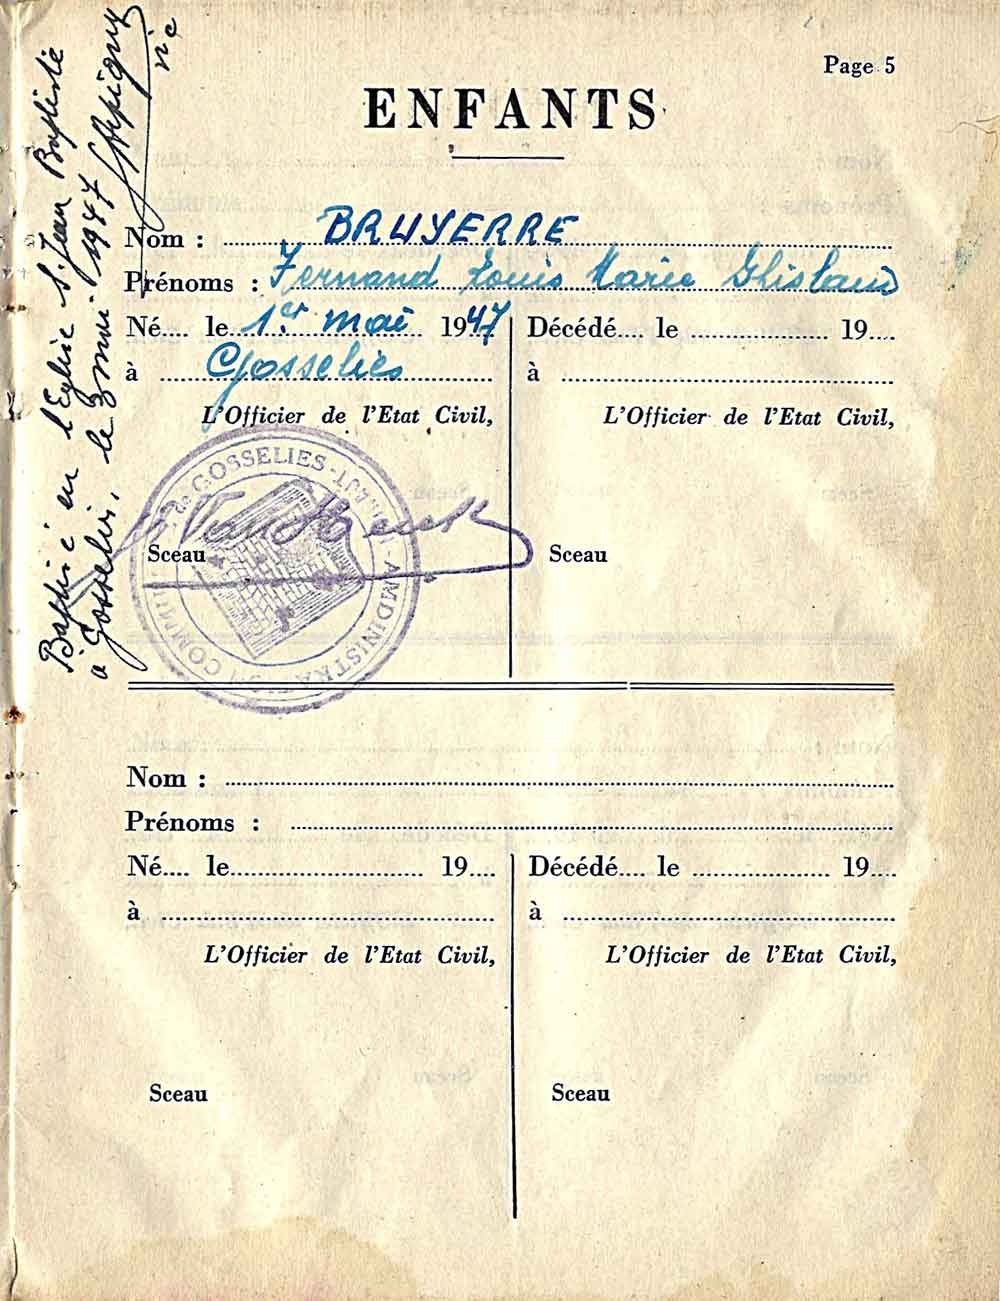 Page 5
ENFANTS
Nom : BRUYERRE
Prénoms : Fernand Louis Marie Ghislain
Né.... le 1er mai 1947
à Gosselies
L'Officier de l'Etat Civil,
Sceau
Décédé.... le .................... 19....
à ....................
L'Officier de l'Etat Civil,
Sceau
de GOSSELIES
Baptisé en l'Eglise St. Jean Baptiste
a Gosselies, le 3 mai 1947
vic
Nom : ....................
Prénoms : ....................
Né.... le.................... 19....
à ....................
L'Officier de l'Etat Civil,
Sceau
Décédé.... le .................... 19....
à ....................
L'Officier de l'Etat Civil,
Sceau